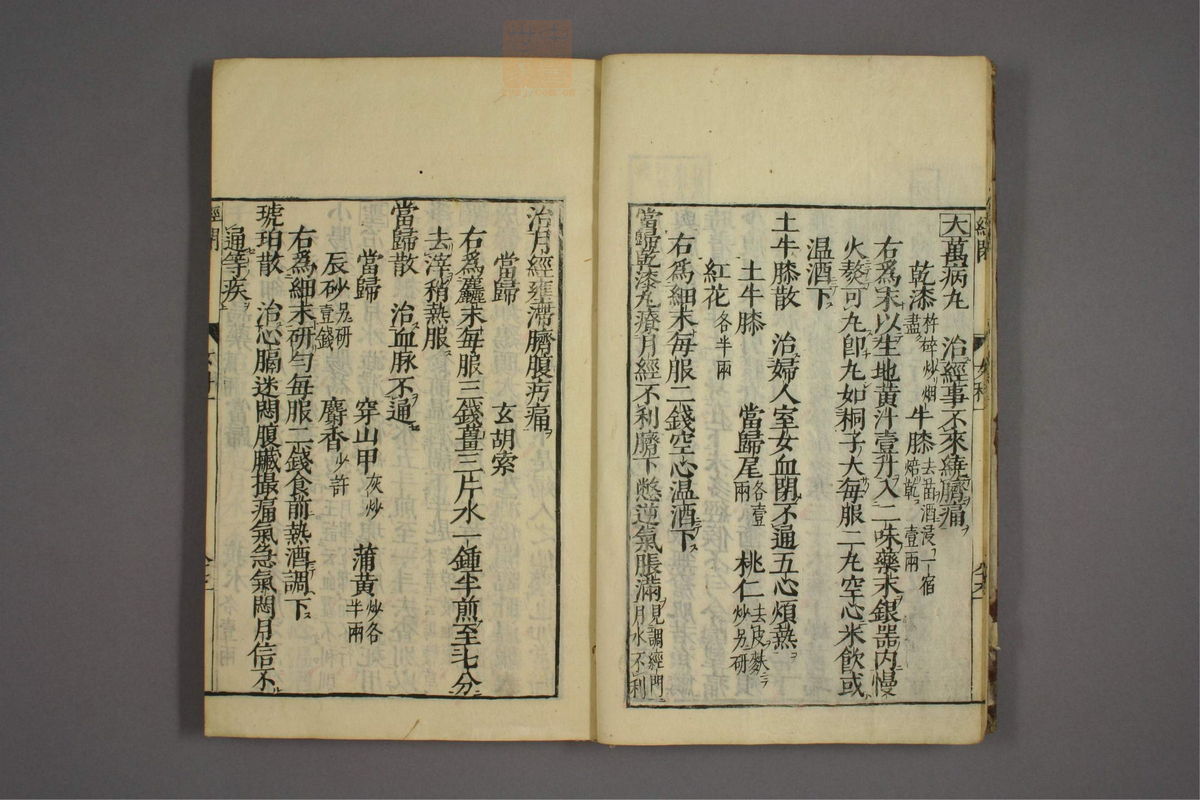 大萬病丸　治經事不來繞臍痛
乾漆杵碎炒烟盡　牛膝去苗酒浸一宿焙乾　壹兩
右爲末以生地黃汁壹升入二味藥末銀器內慢
火熬可丸卽丸如桐子大每服二丸空心米飲或
温酒下
土牛膝散　治婦人室女血閉不通五心煩熱
土牛膝　當歸尾各壹兩　桃仁去皮麩炒另研
紅花各半兩
右爲細末每服二錢空心温酒下
當歸乾漆丸療月經不利臍下憋逆氣脹滿見調經門月水不利
治月經壅滯臍腹疞痛
當歸　玄胡索
右爲麤末每服三錢薑三片水一鍾半煎至七分
去滓稍熱服
當歸散　治血脉不通
當歸　穿山甲灰炒　蒲黃炒各半兩
辰砂另研壹錢　麝香少許
右爲細末研勻每服二錢食前熱酒調下
琥珀散　治心膈迷悶腹臟撮痛氣急氣悶月信不
通等疾
經閉